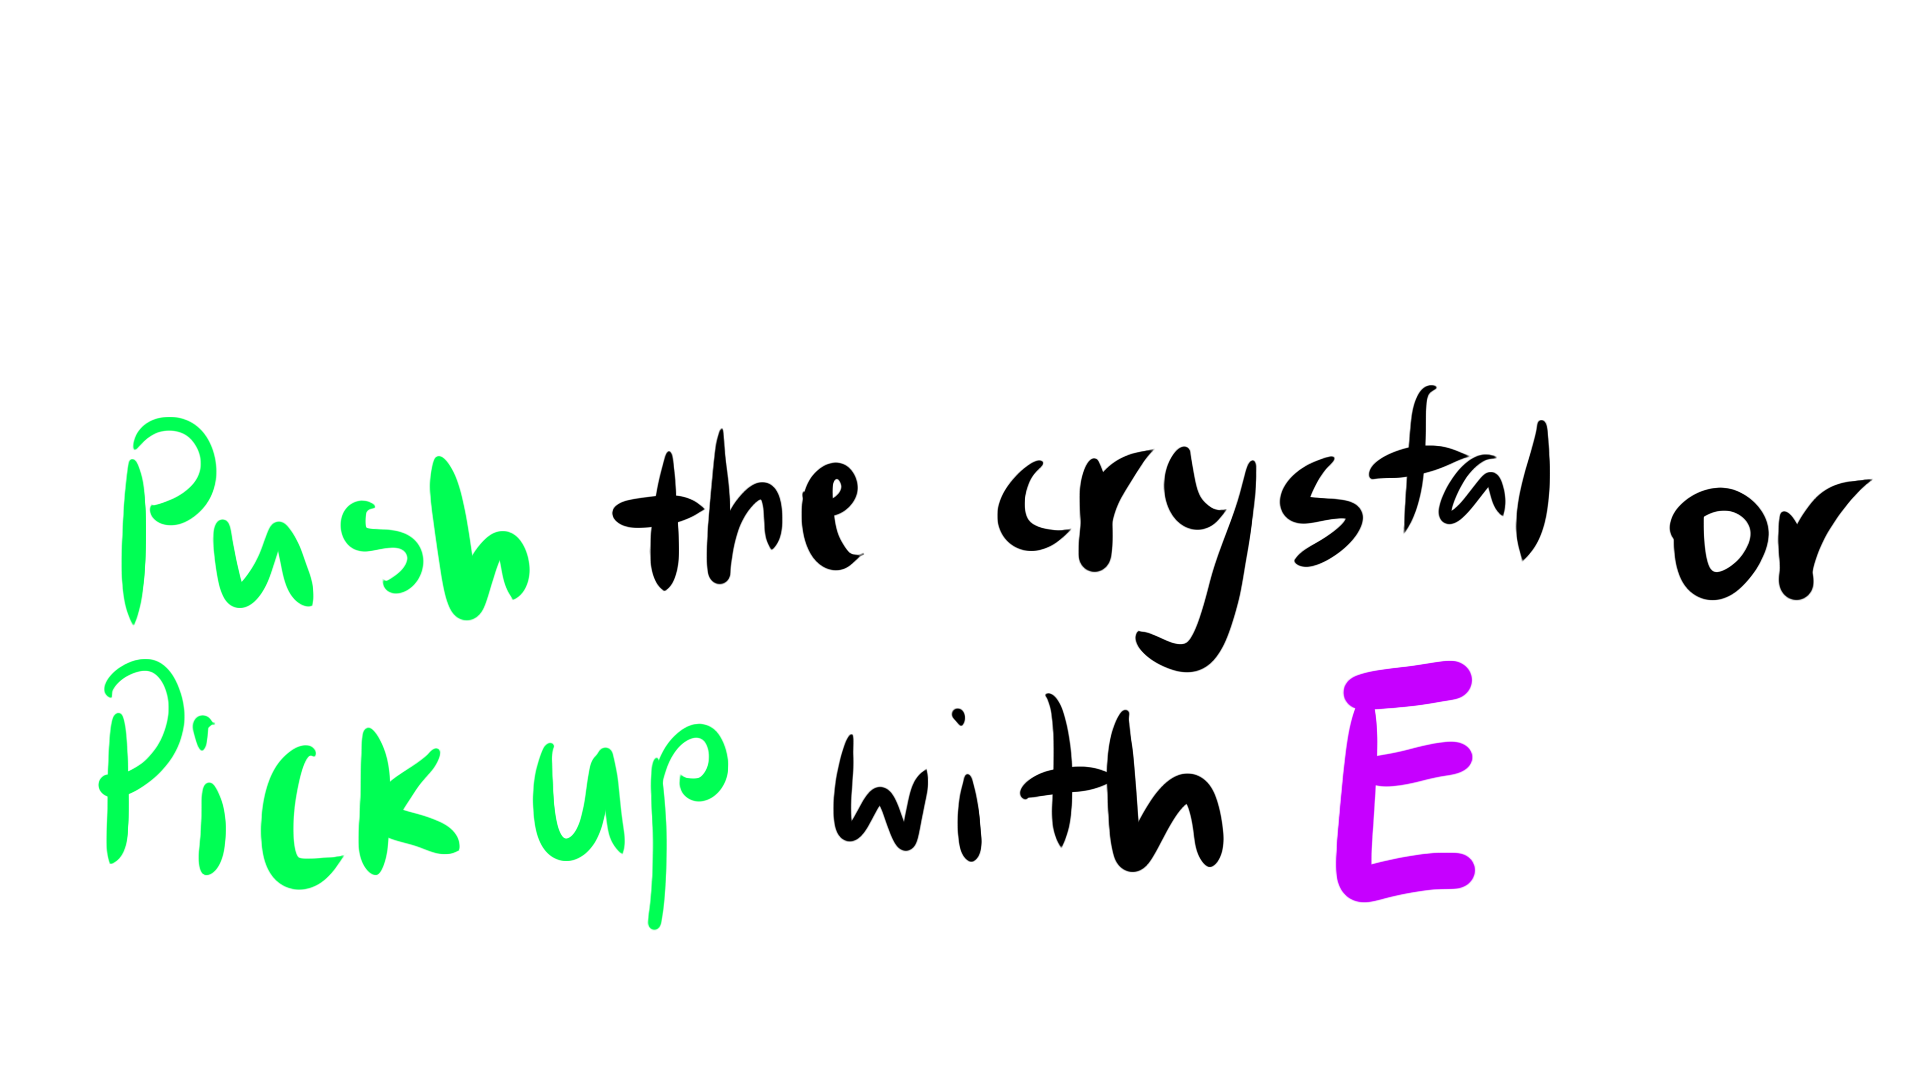 Push the crystal or
Pick up with E